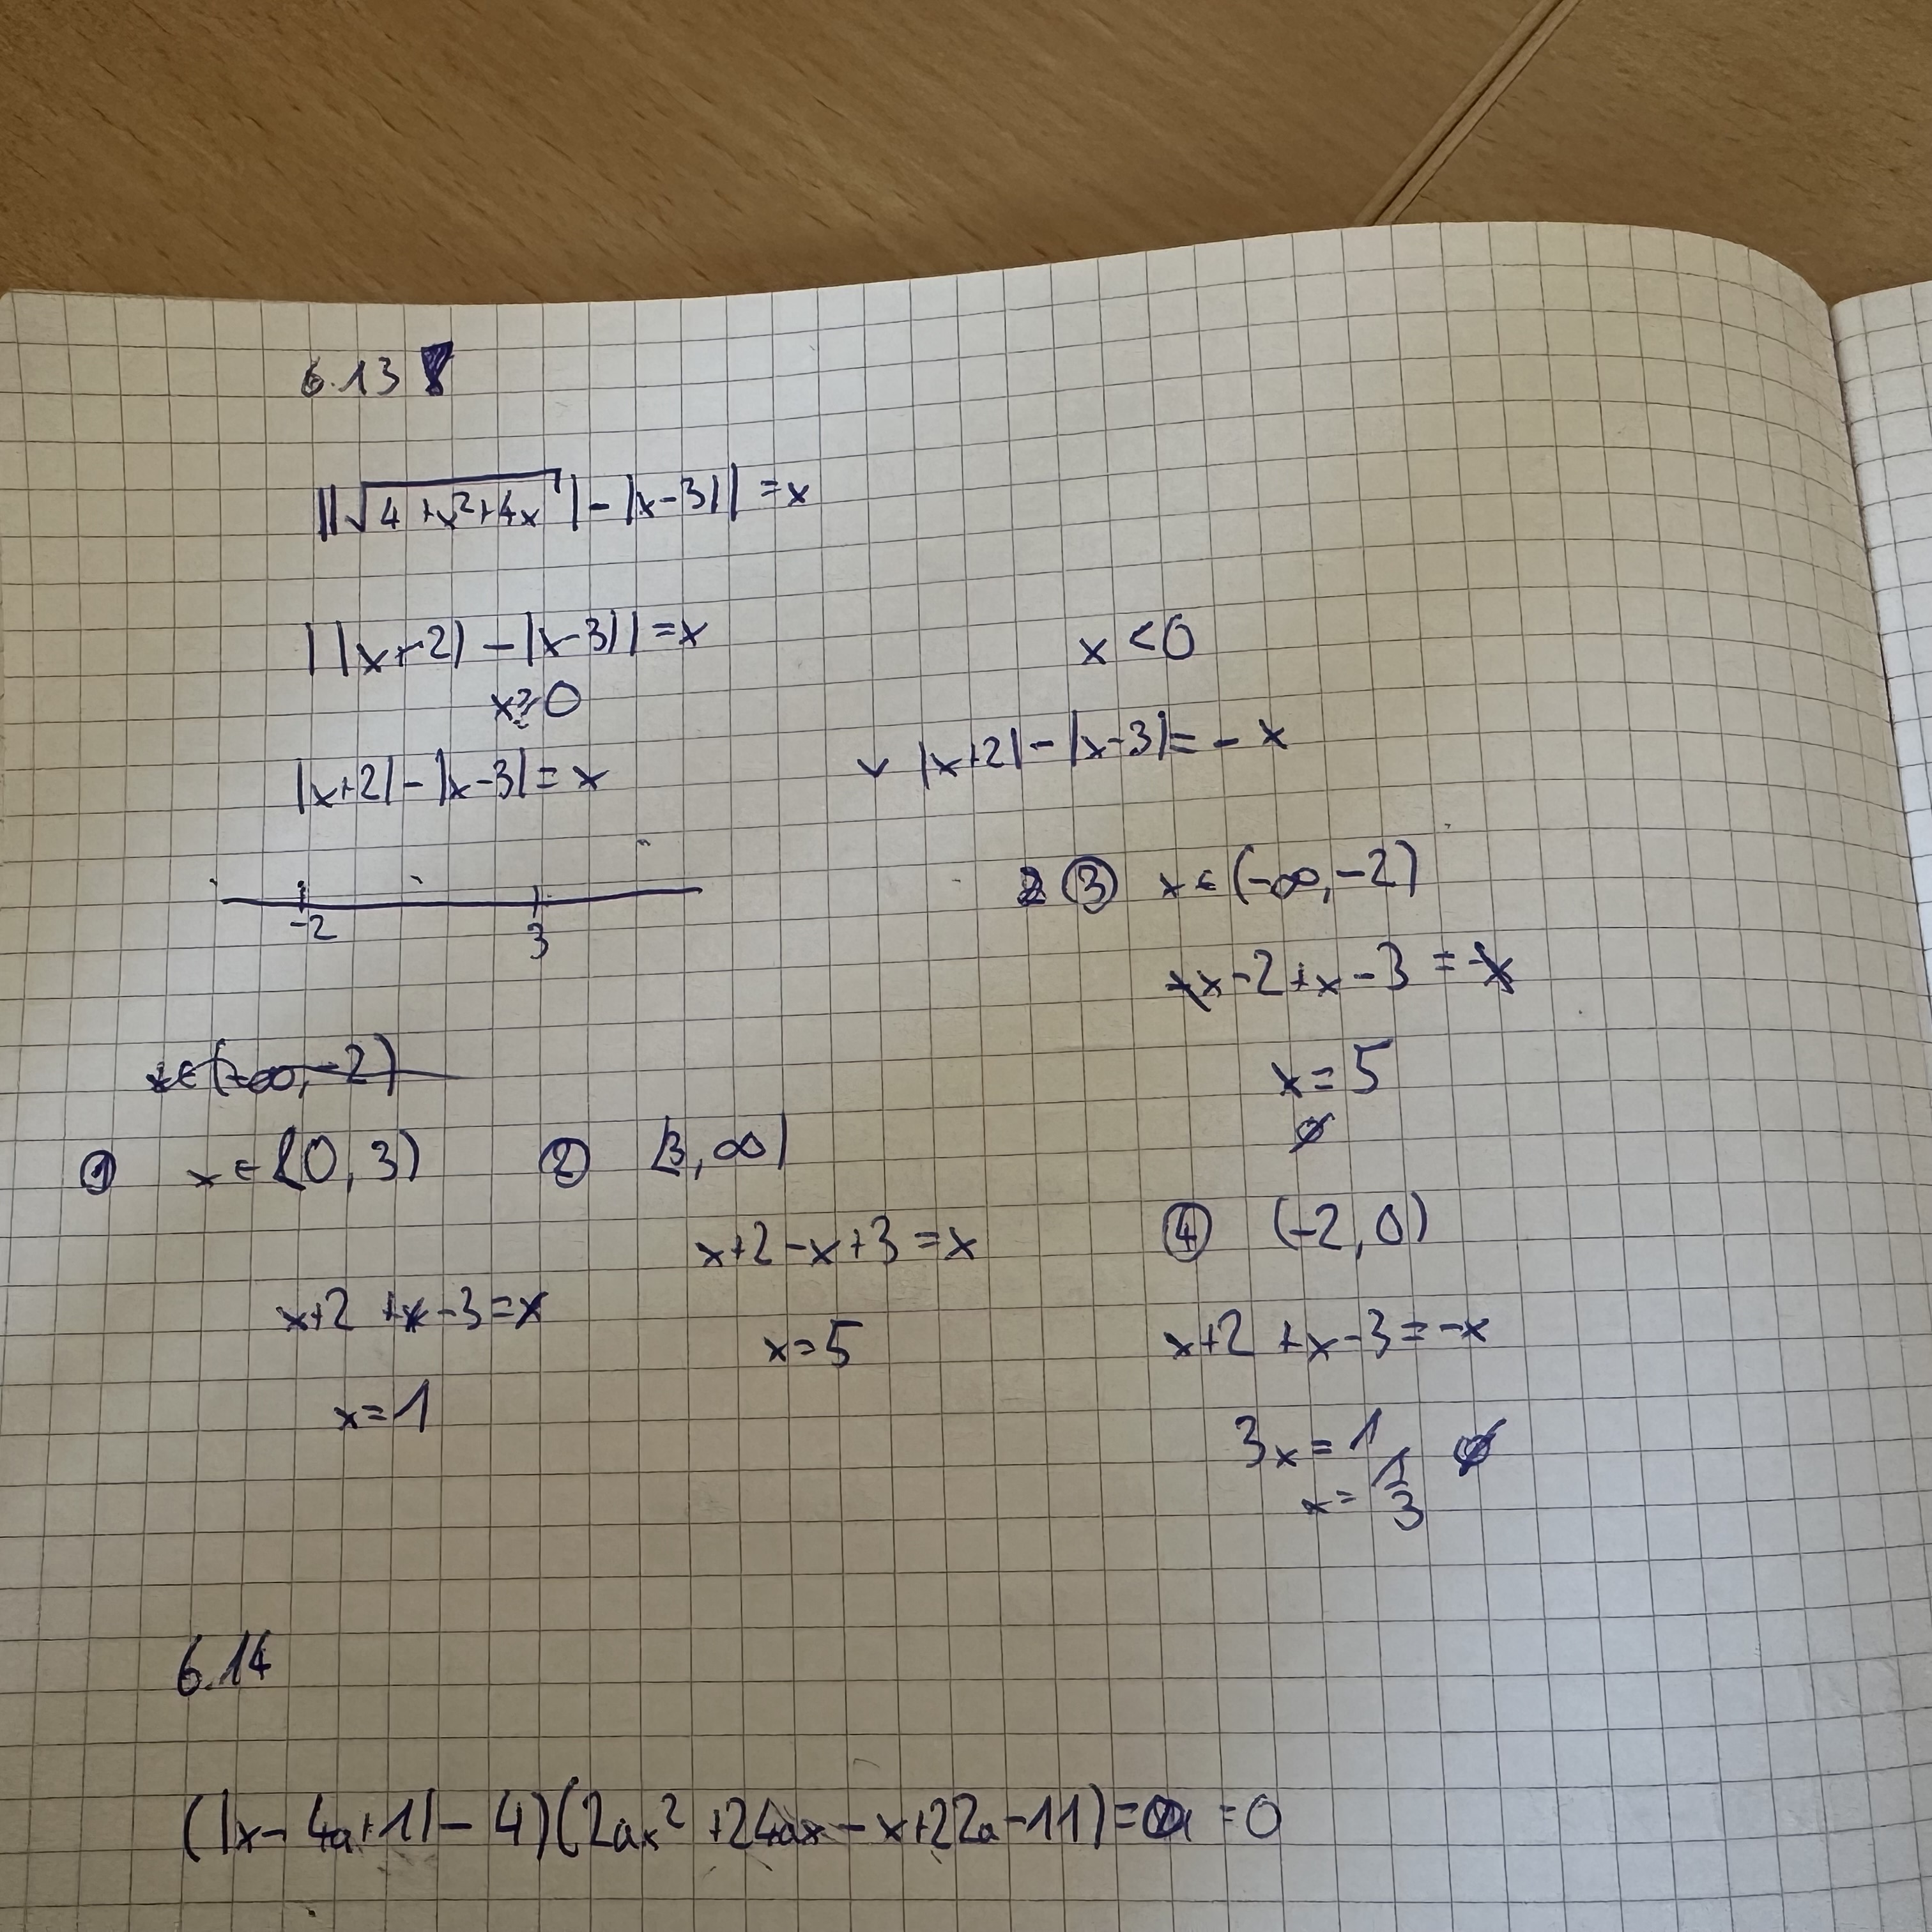 6.13
||√(4+x²+4x)|-|x-3||=x
||x+2|-|x-3||=x
x≥0
|x+2|-|x-3|=x
x<0
v |x+2|-|x-3|=-x
-2
3
x∈(-∞,-2)
① x∈[0,3)
x+2+x-3=x
x=1
② [3,∞)
x+2-x+3=x
x=5
③ x∈(-∞,-2)
-x-2+x-3=-x
x=5
∅
④ (-2,0)
x+2+x-3=-x
3x=1 ∅
x=1/3
6.14
(|x-4a+1|-4)(2ax²+24ax-x+22a-11)= =0